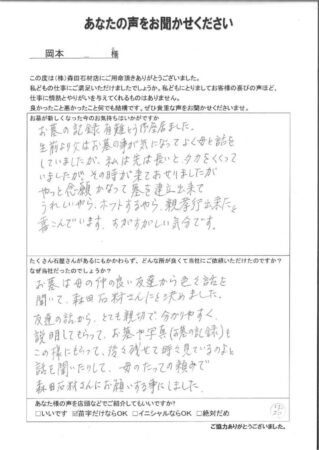 あなたの声をお聞かせください
岡本 様
この度は(株)森田石材店にご用命頂きありがとうございました。
私どもの仕事にご満足いただけましたでしょうか。私どもにとりましてお客様の喜びの声ほど、
仕事に情熱とやりがいを与えてくれるものはありません。
良かったこと悪かったこと何でも結構です。ぜひ貴重なお声をお聞かせくださいませ。
お墓が新しくなった今のお気持ちはいかがですか
お墓の記録有難とう御座居ました。
生前より父はお墓の事が気になってよく母と話を
していましたが、私は先は長いとタカをくくって
いましたが、その時が来ておせりましたが
やっと念願かなって墓を建立出来て
うれしいやら、ホットするやら、親孝行出来たと
喜こんでいます。すがすがしい気分です。
たくさん石屋さんがあるにもかかわらず、どんな所が良くて当社にご依頼いただけたのですか?
なぜ当社だったのでしょうか?
お墓は母の仲の良い友達から色々話を
聞いて、森田石材さんにと決めました。
友達の話から、とても親切で分かりやすく、
説明してもらって、お墓や写真(お墓の記録)も
この様にもらって、後々残せて時々見ているのよと
話を聞いたりして、母のたっての頼みで
森田石材さんにお願いする事にしました。
あなた様の声を店頭などでご紹介してもいいですか?
□いいです ☑苗字だけならOK □イニシャルならOK □絶対だめ
ご協力ありがとうございました。